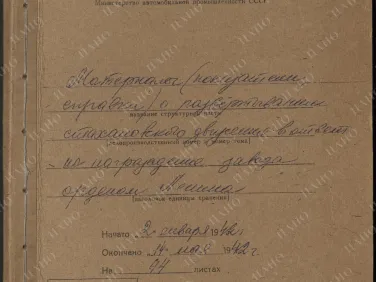 Министерство автомобильной промышленности СССР
Материалы (
справки) о развёртывании
название структурной части
стахановского движения в ответ
(делопроизводственный номер и
на награждение завода
орденом Ленина
(заголовок единицы хранения)
Начато 2 января 1942 г.
Окончено 14 мая 1942 г.
На 94 листах